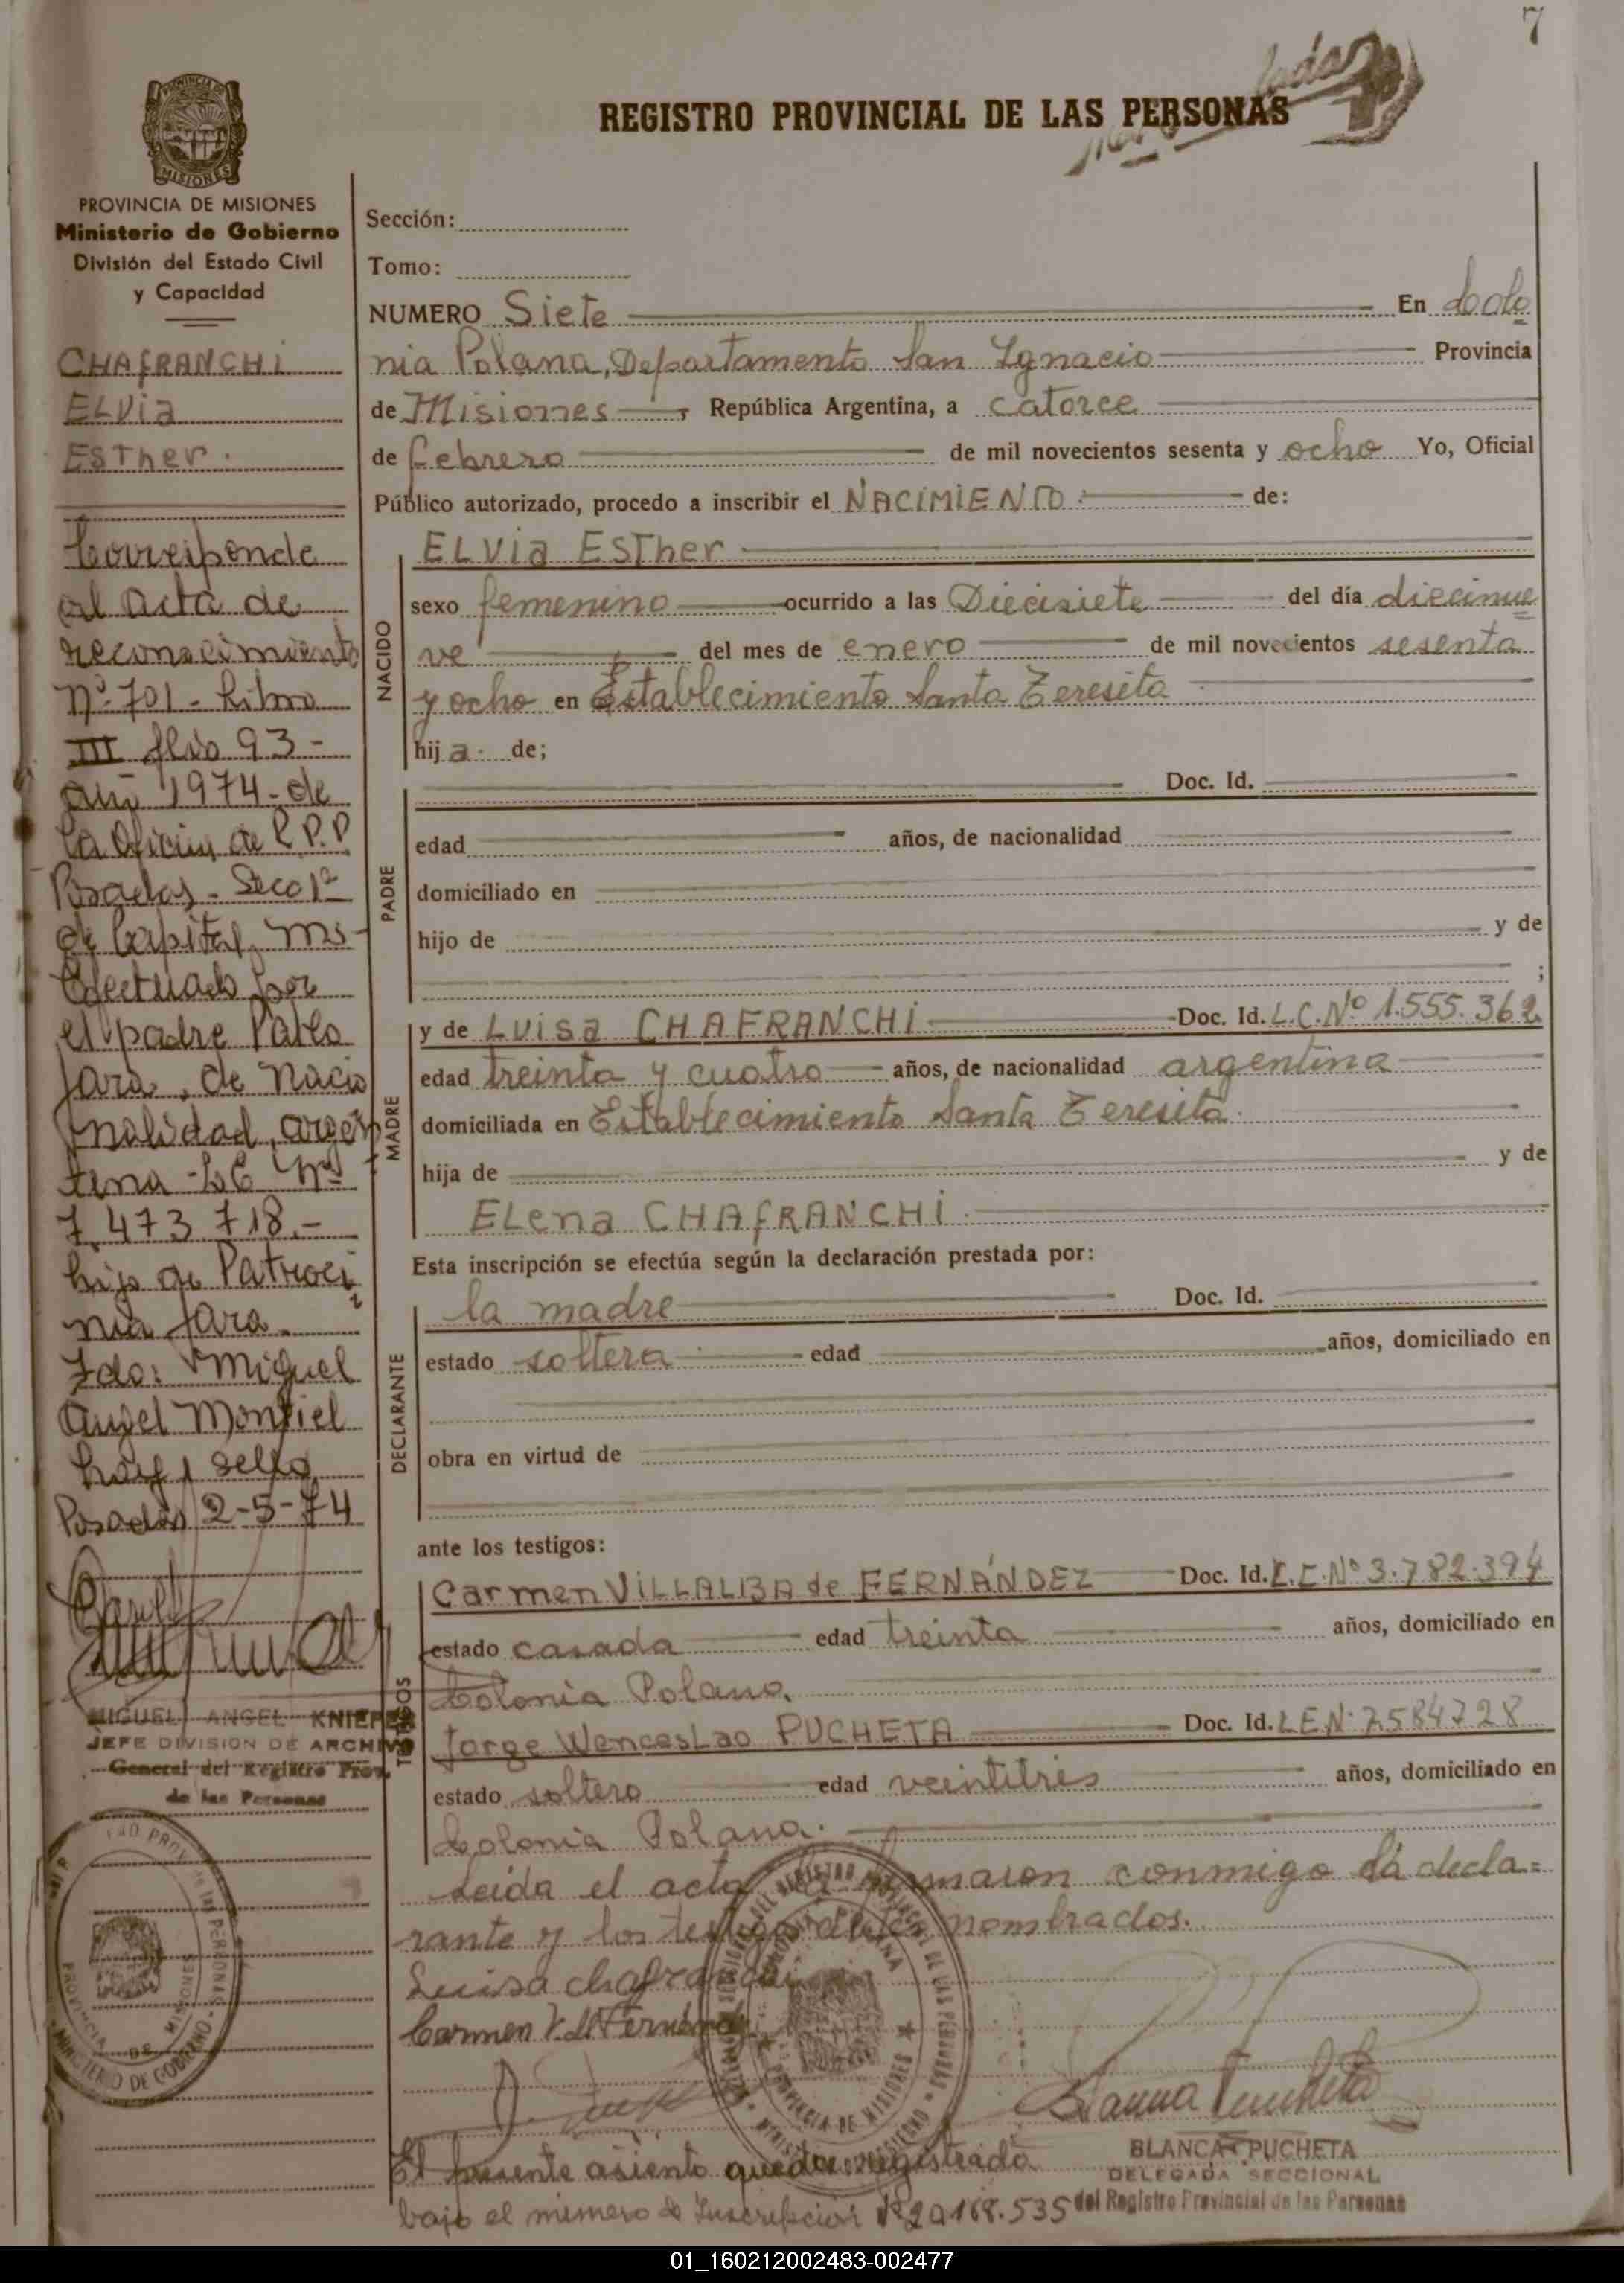 7
REGISTRO PROVINCIAL DE LAS PERSONAS
PROVINCIA DE MISIONES
Ministerio de Gobierno
División del Estado Civil
y Capacidad
CHAFRANCHI
ELVia
ESTher.
Corresponde
al acta de
reconocimiento
Nº 701 - Libro
III flio 93 -
año 1974 - de
la Oficina de R.P.P
Posadas - Secc 1ª
de Capital, Ms -
Efectuado por
el padre Pablo
Jara, de nacio
nalidad, argen
tina - L.E Nº
7.473.718.-
hijo de Patroci
nia Jara.
Fdo: Miguel
Angel Montiel
hay 1 sello
Posadas 2-5-74
MIGUEL ANGEL KNIEPER
JEFE DIVISION DE ARCHIVO
General del Registro Prov.
de las Personas
Sección:
Tomo:
NUMERO Siete En Colo
nia Polana, Departamento San Ignacio Provincia
de Misiones, República Argentina, a catorce
de febrero de mil novecientos sesenta y ocho Yo, Oficial
Público autorizado, procedo a inscribir el NACIMIENTO de:
NACIDO
ELVia ESTher
sexo femenino ocurrido a las Diecisiete del día diecinue
ve del mes de enero de mil novecientos sesenta
y ocho en Establecimiento Santa Teresita
hij a. de;
PADRE
Doc. Id.
edad años, de nacionalidad
domiciliado en
hijo de y de
;
MADRE
y de LUISa CHAFRANCHI Doc. Id. L.C.Nº 1.555.362
edad treinta y cuatro años, de nacionalidad argentina
domiciliada en Establecimiento Santa Teresita.
hija de y de
ELena CHAFRANCHI.
Esta inscripción se efectúa según la declaración prestada por:
DECLARANTE
la madre Doc. Id.
estado soltera edad años, domiciliado en
obra en virtud de
ante los testigos:
TESTIGOS
Carmen VILLALBA de FERNÁNDEZ Doc. Id. L.C.Nº 3.782.394
estado casada edad treinta años, domiciliado en
Colonia Polana.
Jorge WencesLao PUCHETA Doc. Id. L.E.Nº 7.584.728
estado soltero edad veintitrés años, domiciliado en
Colonia Polana.
Leida el acta la firmaron conmigo la decla=
rante y los testigos antes nombrados.
Luisa chafranchi
Carmen V. de Fernández
BLANCA PUCHETA
DELEGADA SECCIONAL
del Registro Provincial de las Personas
El presente asiento queda registrado
bajo el número de Inscripción Nº 20.168.535
PROVINCIA DE MISIONES
MINISTERIO DE GOBIERNO
01_160212002483-002477